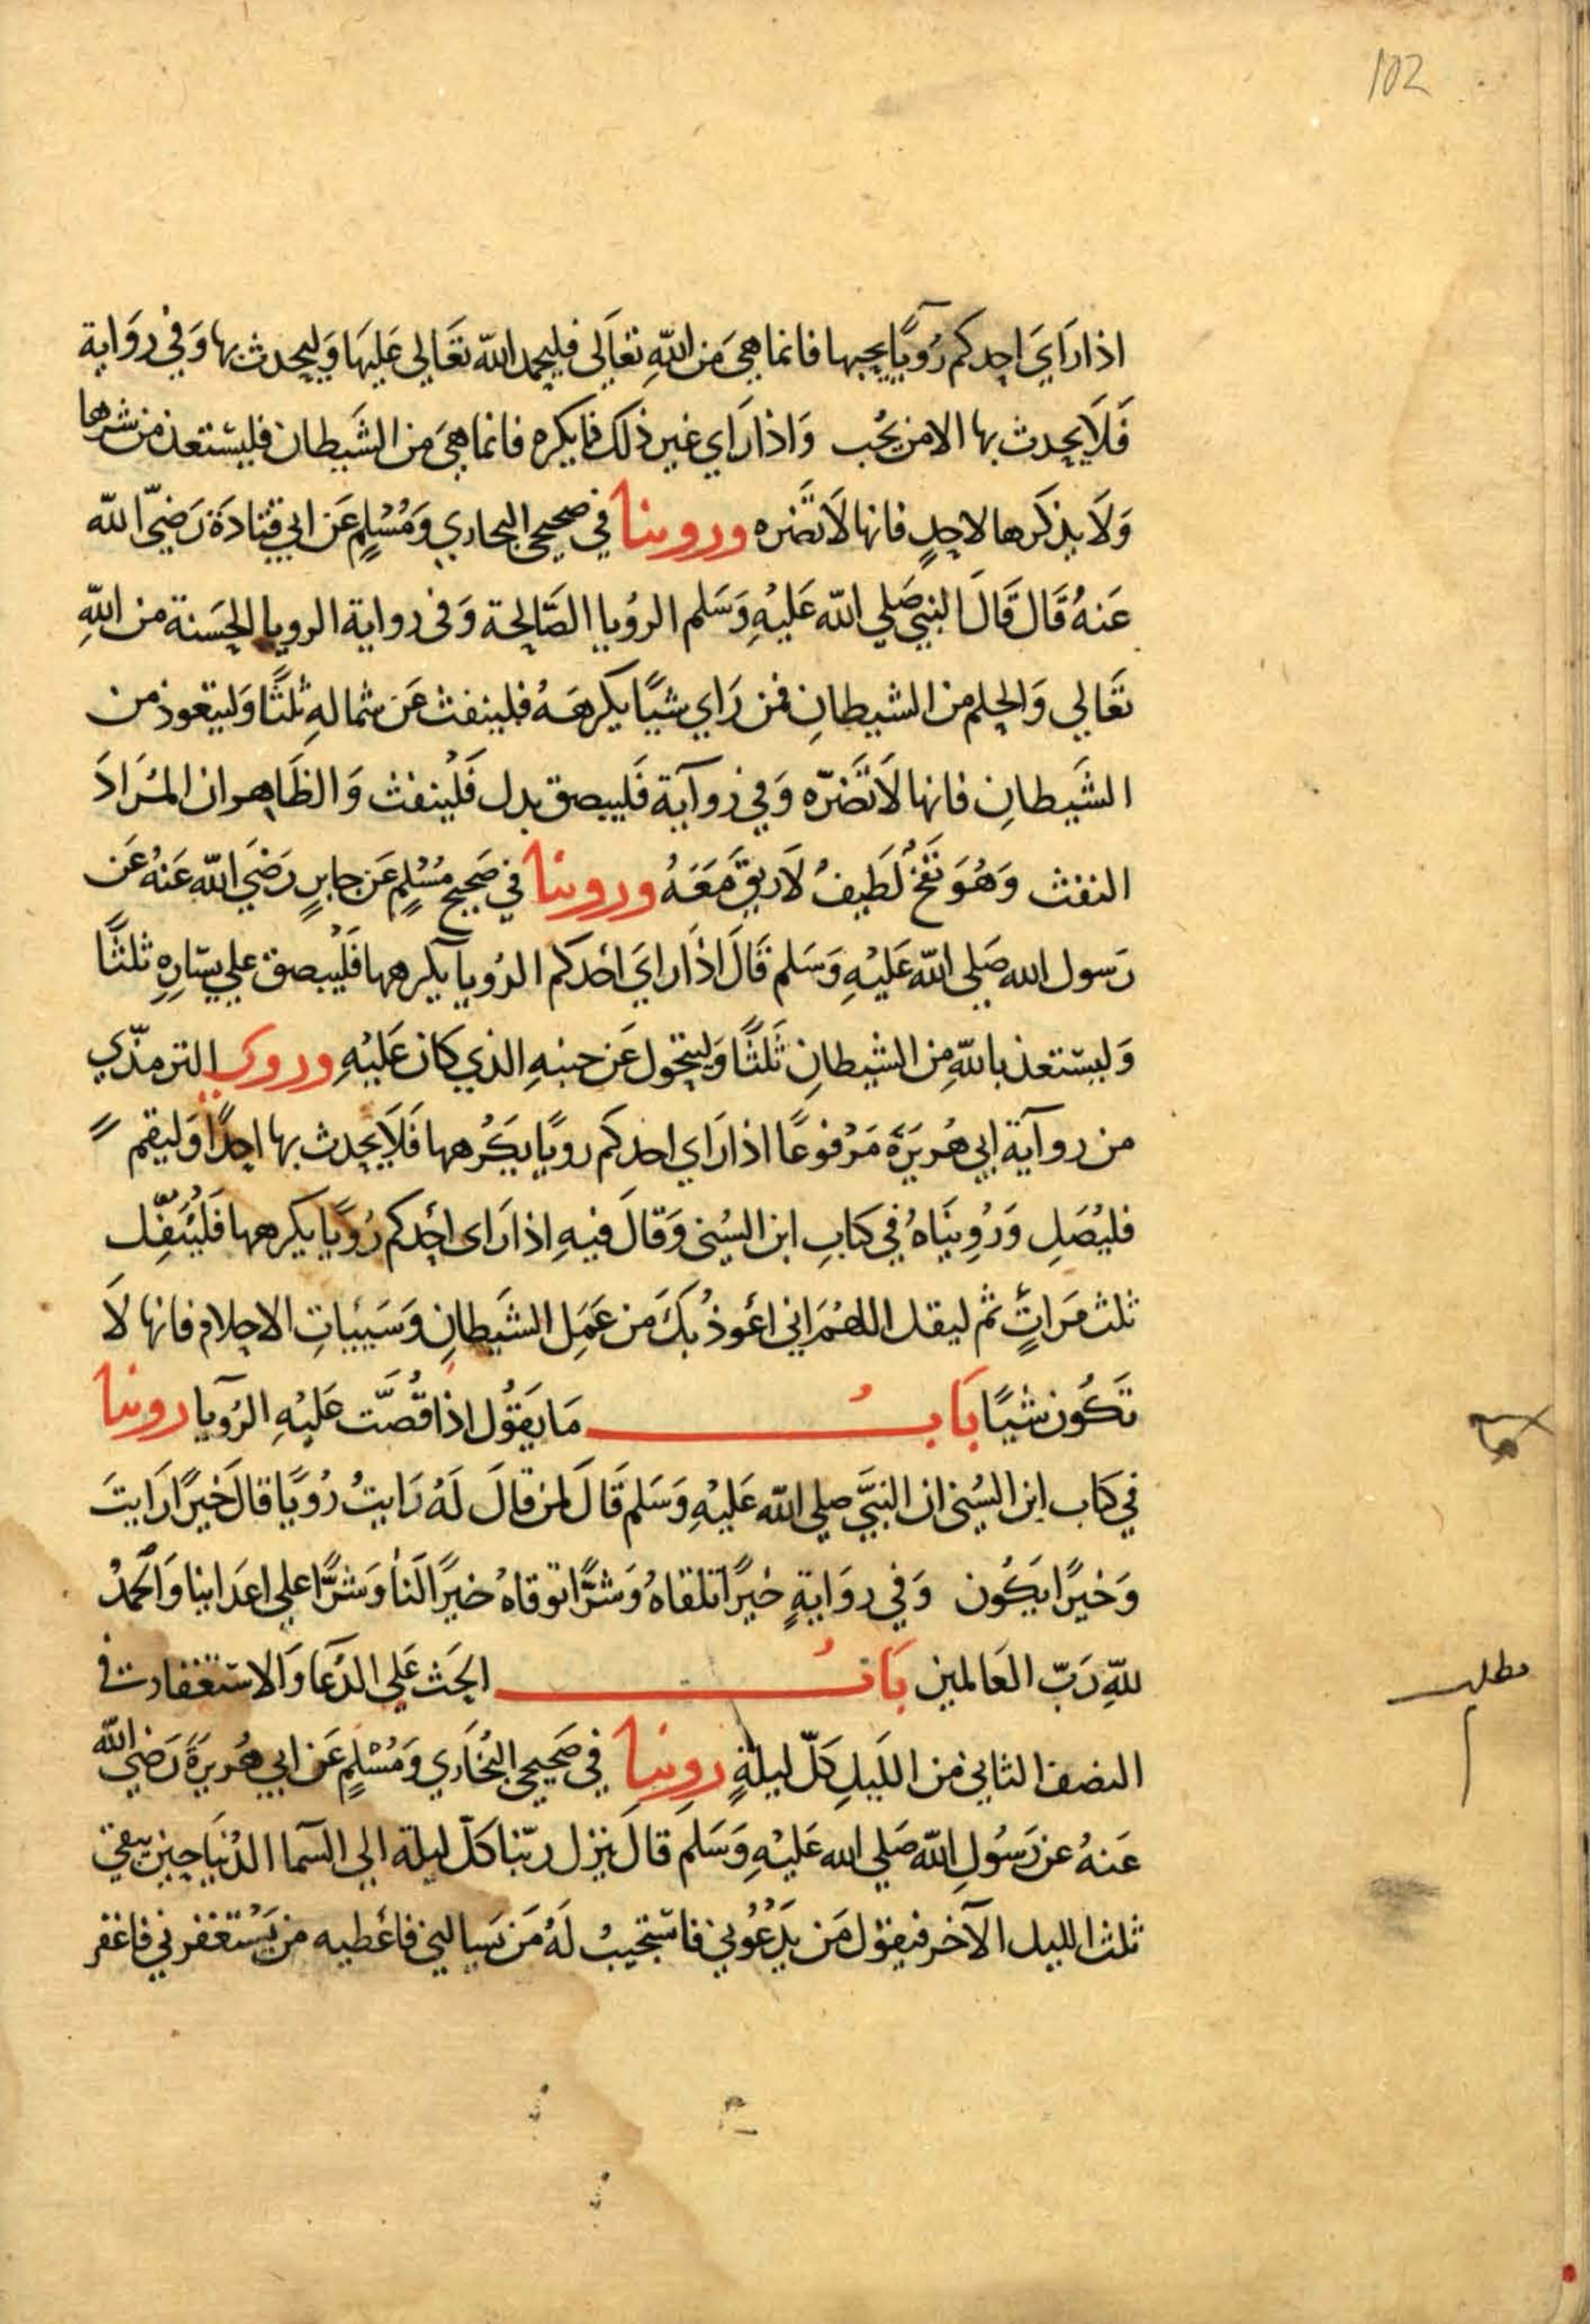 102
اذا رَايَ احدكم رُويًا يحبها فانما هيَ مَن اللّهِ تعَالَى فليحمد اللّه تعَالي عَليهَا وَليحدث بها وَفي روَاية
فَلَا يحدث بها الا من يُحب وَاذا رَاي غير ذلك مما يكره فانما هيَ من الشَيطان فليسْتعذ من شرها
وَلَا يذكرها لاحدٍ فانها لَا تَضره وروينا في صحيحي البخاري وَمُسْلمٍ عَن ابي قتادَة رَضيَ اللّه
عَنهُ قَال قَالَ النبي صَلي اللّه عَليْهِ وَسَلم الرُويا الصَّالحة وَفى رواية الرويا الحَسنة من اللّهِ
تعَالي وَالحلم من الشيطانِ فمن رَاي شيًا يكرهَهُ فلينفث عَن شمالهِ ثلثًا وَليتعوذ من
الشَيطانِ فانها لَا تَضرّه وَفي روآية فَليبصق بدل فَلْينفث وَالظَاهر ان المرَادَ
النفث وَهُوَ نَفخُ لَطيفُ لَا ريقَ مَعَهُ وروينا في صَحيح مُسْلمٍ عَن جابرٍ رَضيَ اللّه عَنهُ عَن
رَسول الله صَلي اللّه عَليْهِ وَسَلم قَالَ اذَا رايَ احَدكم الرُويآ يكرهها فَلْيبصق علي يسَارِهِ ثلثًا
وَليسْتعذ باللّهِ مِن الشيطانِ ثَلثًا وَليتحول عَن جنبهِ الذي كان عَليْهِ وروي الترمذّي
من روآية ابي هُريَرَة مَرْفوعًا اذا رَاي احدكم رويًا يَكرُهها فَلَا يحدث بها احدًا وَليقم
فليُصَلِ وَرُوِينَاهُ في كتابِ ابن السُني وَقالَ فيهِ اذا رَاى احَدكم رُويًا يكرهها فَليُتفِّل
ثلث مَراتٍ ثم ليقل اللهُمَ اني اعُوذُ بكَ من عَمَل الشَيطانِ وَسَيياتِ الاحلام فانها لَا
تَكُون شيًا بَابُ مَا يَقوُل اذا قُصَّت عَليْهِ الرُويآ روينا
في كتاب ابن السُني ان النبيَّ صلي اللّه عَليْهِ وَسَلم قَالَ لمن قالَ لَهُ رَايتُ رُويًا قالَ خَيرًا رَايتَ
وَخيرًا يَكُون وَفي روَايةٍ خيرًا تلقاهُ وَشرًا توقاهُ خيرًا لَنا وَشرًّا علي اعدَاينا وَالحمدُ
للّهِ رَبّ العَالمين بَابُ الحَث عَلي الدُعَا وَالاسْتغفار في
النصف الثاني من اللَيلِ كلّ ليلةٍ رِوينا في صَحيحي البُخَاري وَمُسْلمٍ عَن ابي هُريرَةَ رَضي اللّه
عَنهُ عن رَسُولِ اللّه صَلي الله عَليْهِ وَسَلم قالَ ينزل ربّنا كلّ ليلة الي السمآا الدُنيَا حين يبقي
ثلث الليل الآخر فيقوْل مَن يَدْعُوني فاسْتجيبُ لَهُ مَن يَسالني فاعَطيه من يَسْتغفرني فاغفر
مطلب